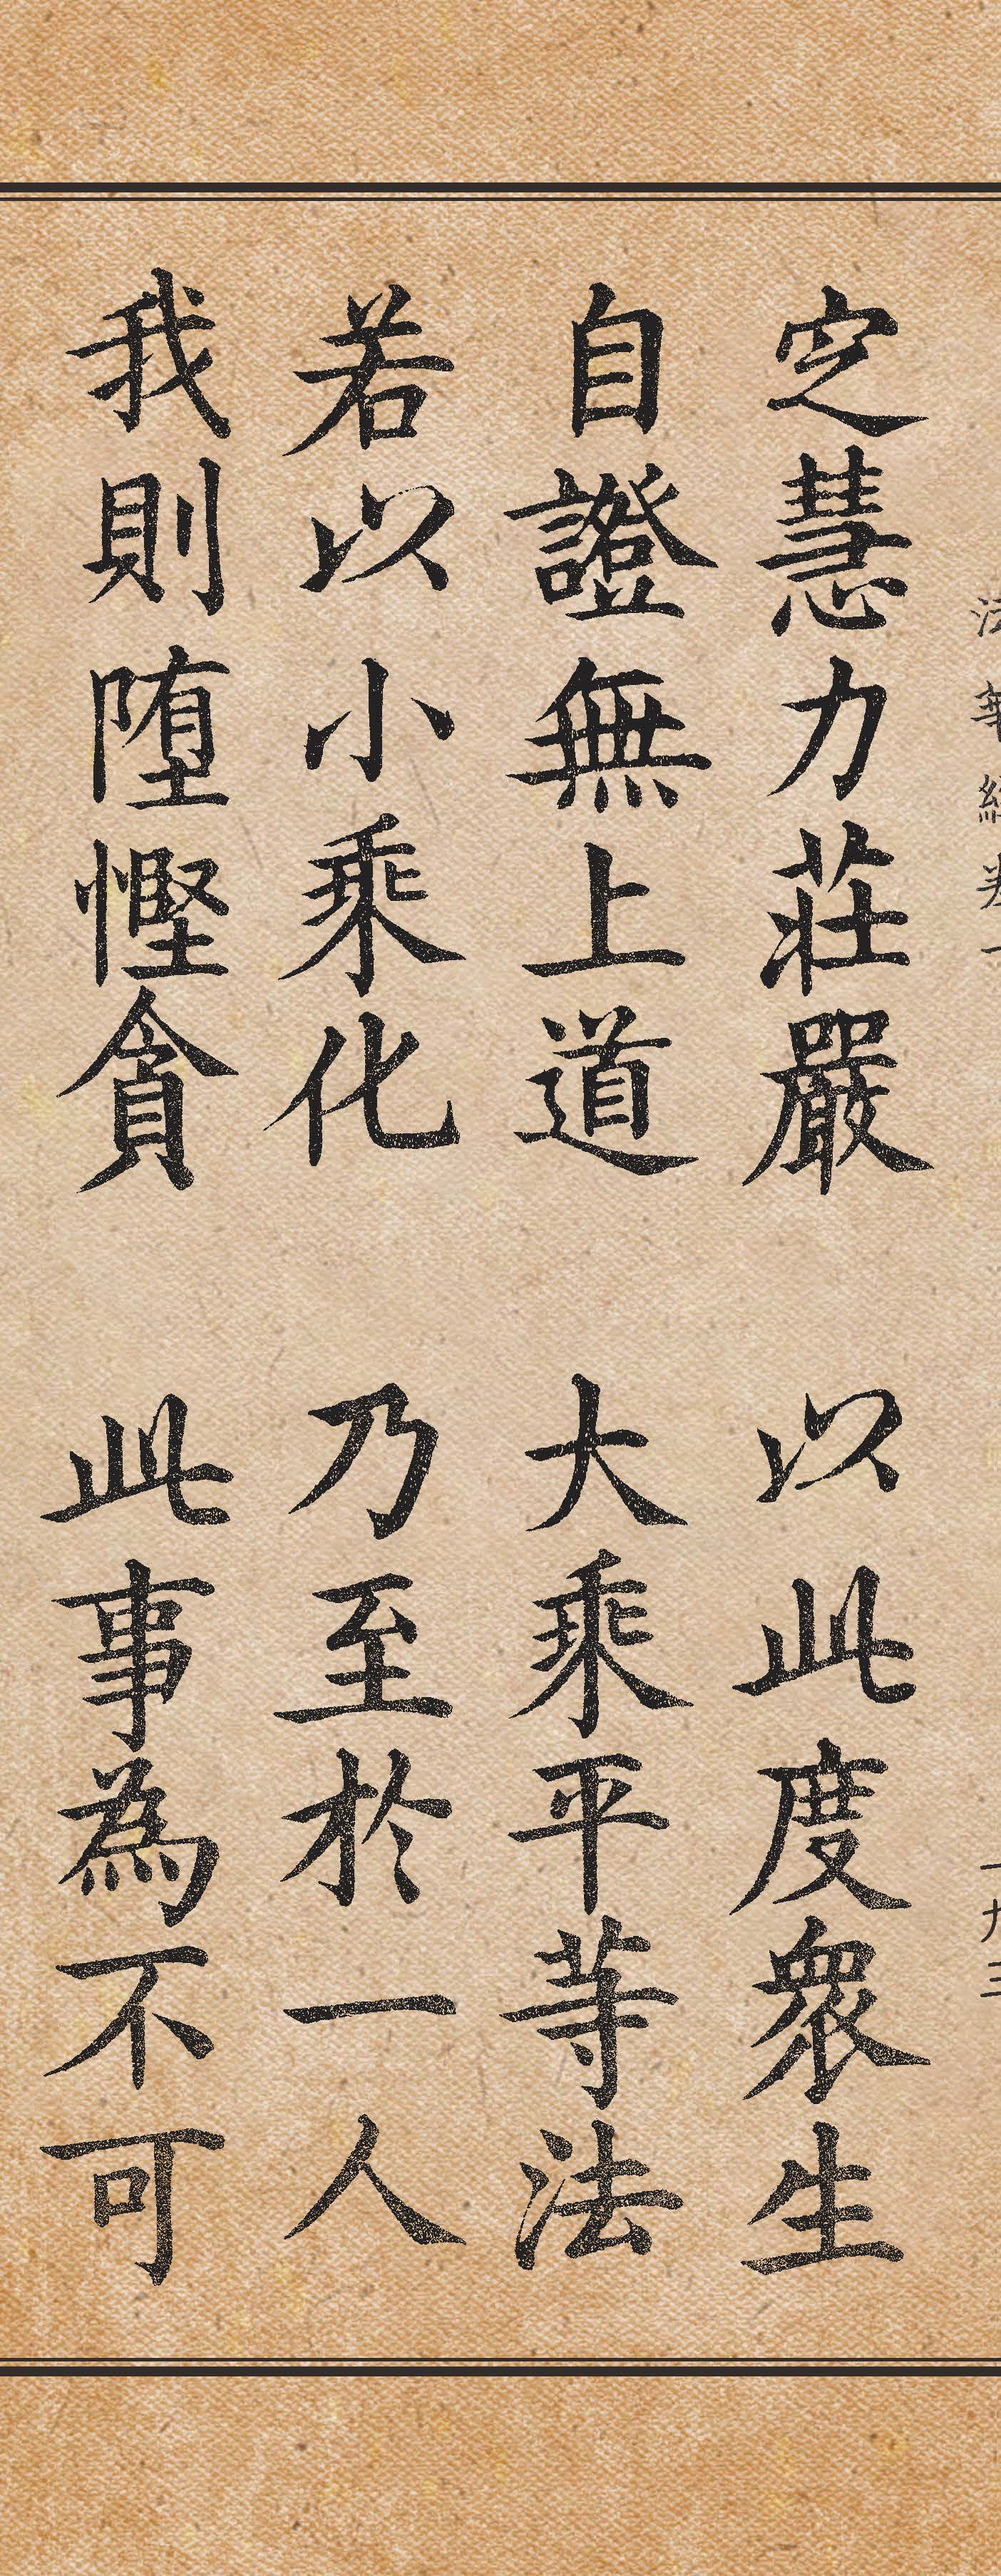 定慧力莊嚴 以此度衆生
自證無上道 大乘平等法
若以小乘化 乃至於一人
我則堕慳貪 此事為不可